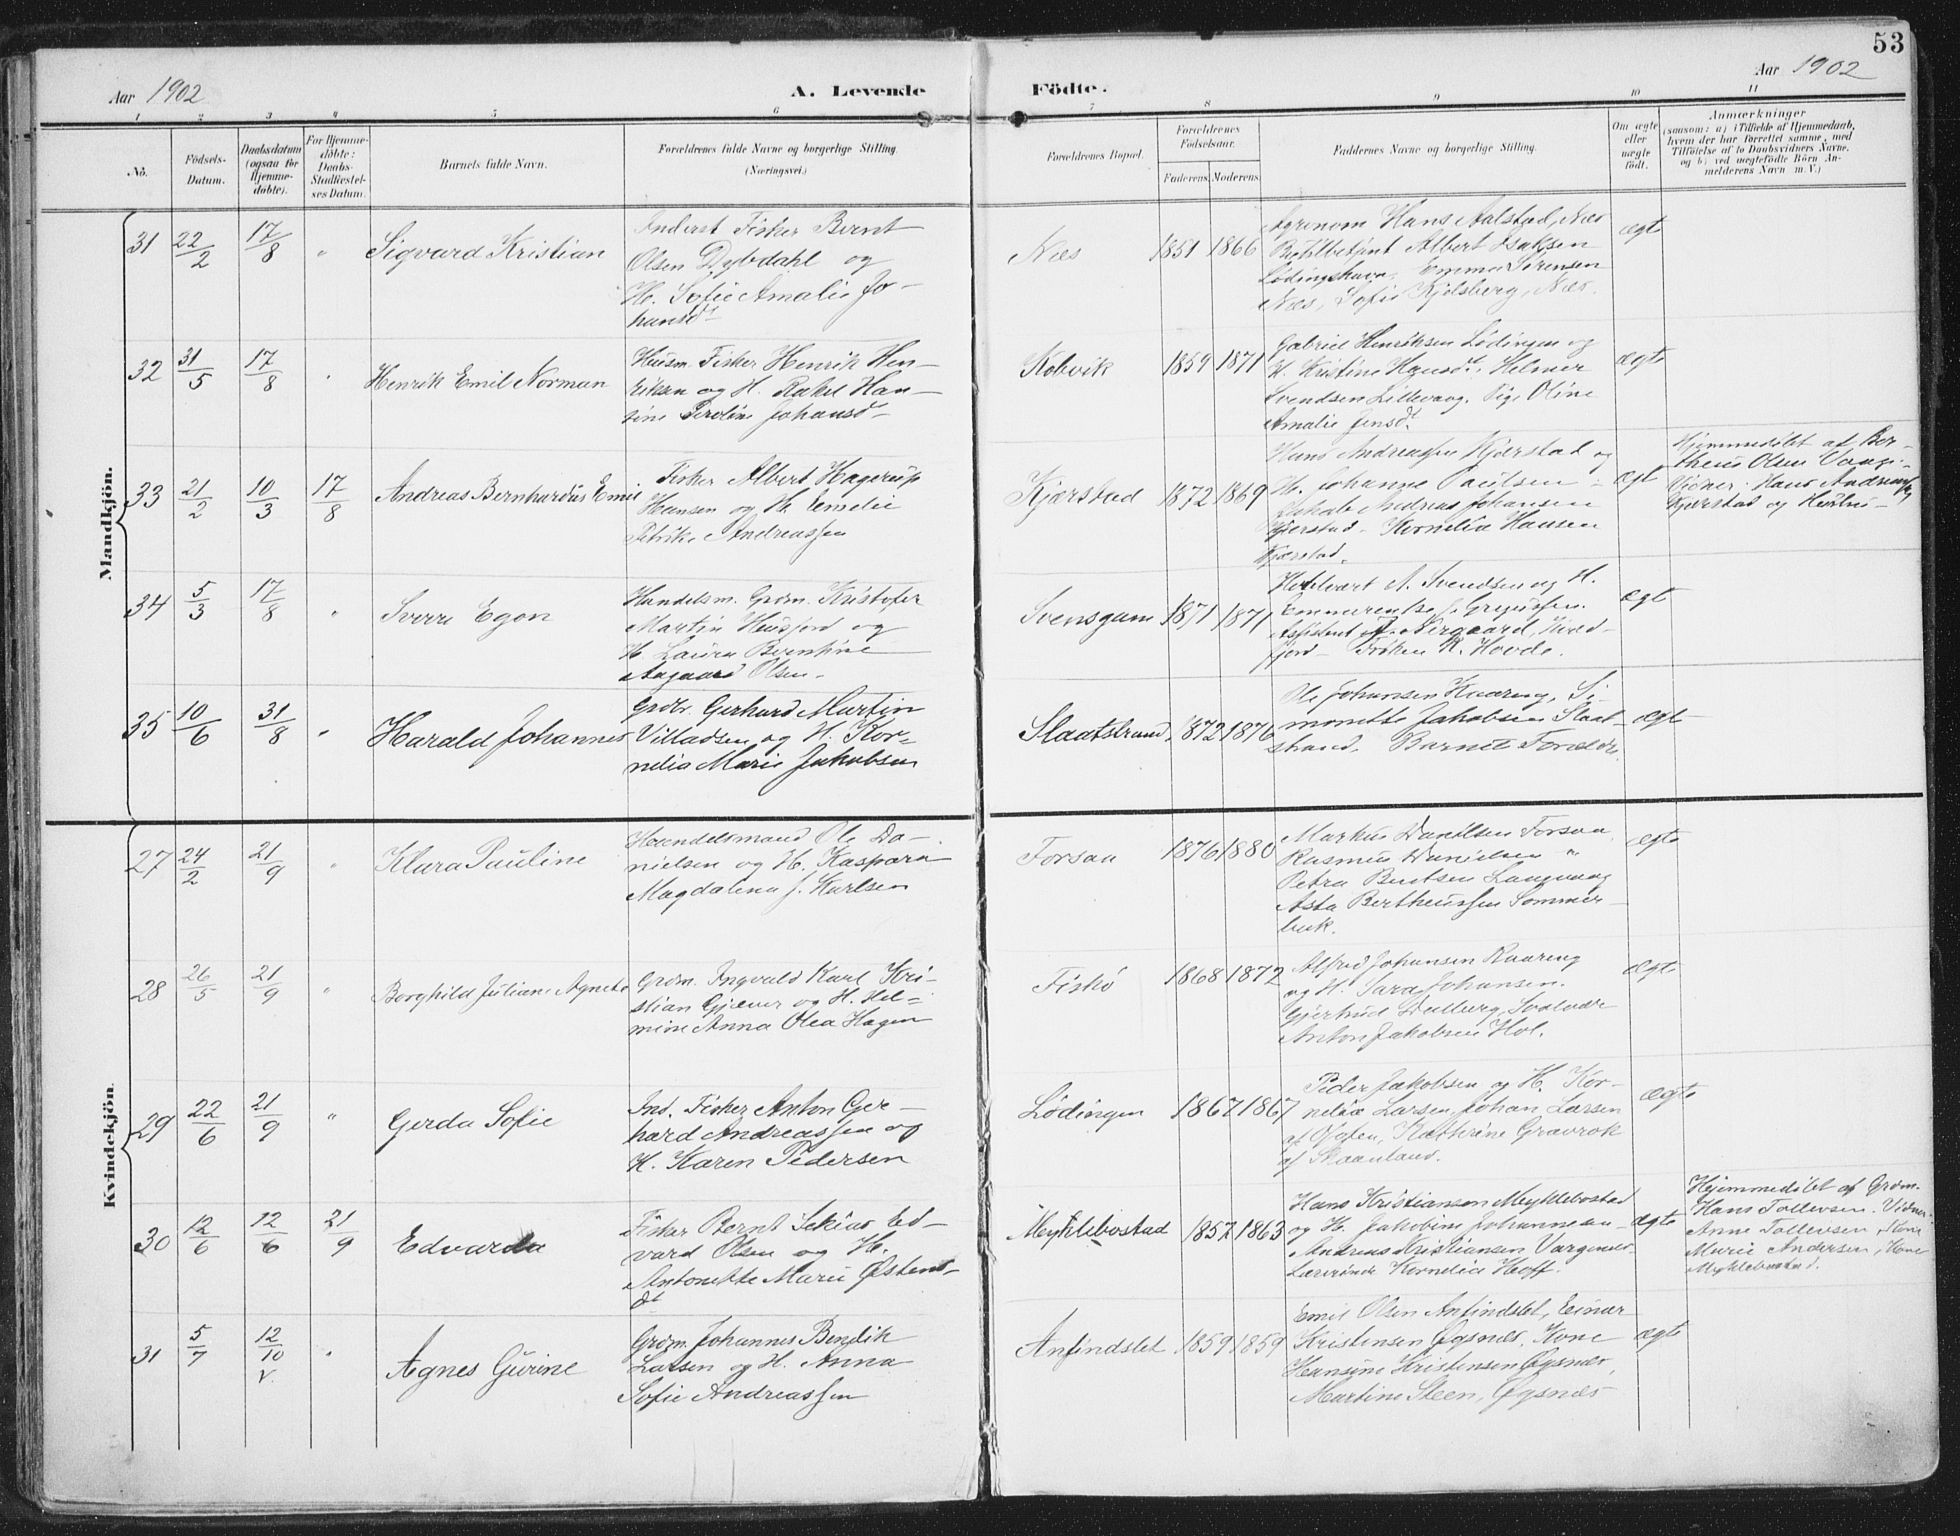 53
Aar 1902
A. Levende
Födte.
Aar 1902
1 2 3 4 5 6 7 8 9 10 11
No.
Födsels-
Datum.
Daabsdatum
(ogsaa for
Hjemme-
döbte).
For Hjemme-
döbte:
Daabs-
Stadfæstel-
ses Datum.
Barnets fulde Navn.
Forældrenes fulde Navne og borgerlige Stilling.
(Næringsvei.)
Forældrenes Bopæl.
Forældrenes
Födselsaar.
Faderens. Moderens.
Faddernes Navne og borgerlige Stilling.
Om ægte
eller
uægte
födt.
Anmærkninger
(saasom: a) i Tilfælde af Hjemmedaab,
hvem der har forrettet samme, med
Tilföielse af to Daabsvidners Navne,
og b) ved uægtefödte Börn An-
melderens Navn m. V.)
Mandkjön.
31 22/2 17/8 " Sigvard Kristian
Inderst Fisker Bernt
Olsen Dybdahl og
H. Sofie Amalie Jo-
hansdt
Næs 1851 1866
Agronom Hans Aalstad, Næs
Albert Isaksen
Lødingshavn, Emma Sørensen
Næs, Sofie Kjelsberg, Næs.
ægt
32 31/5 17/8 " Henrik Emil Norman
Husm. Fisker Henrik Hen-
riksen og H. Rakel Han-
sine Johansdt
Kobvik 1859 1871
Gabriel Henriksen Lødingen og
H. Kristine Hansdt, Helmer
Svendsen Lillevaag. Pige Oline
Amalie Jensdt.
ægte
33 21/2 10/3 17/8 Andreas Bernhardus Emil
Fisker Albert Hagerup
Hansen og H. Emelie
Petrike Andreassen
Kjærstad 1872 1869
Hans Andreassen Kjærstad og
H. Johanne Paulsen -
Jakob Andreas Johansen
Kjerstad - Kornelia Hansen
Kjærstad.
ægt
Hjemmedøbt af Ber-
theus Olsen Vaage-
Vidner: Hans Andreassen
Kjærstad og Hustru -
34 5/3 17/8 " Sverre Egon
Handelsm. Grdm. Kristofer
Martin Husjord og
H. Laura Berntine
Aagaard Olsen.
Svensgam 1871 1871
A. Svendsen og H.
Emmerentse f. Gregussen.
Assistent A. Nergaard, Kvæd-
fjord - Frøken R. Hovde.
ægt
35 10/6 31/8 " Harald Johannes
Grdbr. Gerhard Martin
Villadsen og H. Kor-
nelia Marie Jakobsen
Slaatstrand 1872 1876
Ole Johansen Kaaring, Si-
monette Jakobsen Slaat-
strand. Barnets Foreldre
ægte
Kvindekjön.
27 24/2 21/9 " Klara Pauline
Handelsmand Ole Da-
nielsen og H. Kaspara
Magdalena f. Karlsen
Forsaa 1876 1880
Markus Danielsen Forsaa
Rasmus Danielsen "
Petra Bentsen Langvaag
Asta Bertheussen Sommer-
buk.
ægte
28 26/5 21/9 " Borghild Juliane Agnete
Grdm. Ingvald Karl Kri-
stian Gjæver og H. Hel-
mine Anna Olea Hagen
Fiskø 1868 1872
Alfred Johansen Kaaring
og H. Sara Johansen.
Gjertrud Dulberg, Svolvær
Anton Jakobsen Hol.
ægte
29 22/6 21/9 " Gerda Sofie
Ind. Fisker Anton Ger-
hard Andreassen og
H. Karen Pedersen
Lødingen 1867 1867
Peder Jakobsen og H. Kor-
nelia Larsen, Johan Larsen
af Ofoten, Kathrine Gravrok
af Skaanland.
ægte
30 12/6 12/6 21/9 Edvarda
Fisker Bernt Sekius Ed-
vard Olsen og H.
Antonette Marie Østens-
dt
Myklebostad 1857 1863
Hans Kristiansen Myklebostad
og H. Jakobine Johannesen
Andreas Kristiansen
Lærerinde Kornelia Hoff.
ægte
Hjemmedøbt af Grdm.
Hans Tollevsen. Vidner
Anne Tollevsen, Kone
Marie Andersen, Kone
Myklebostad.
31 5/7 12/10 " Agnes Gurine
v.
Grdm. Johannes Bendik
Larsen og H. Anna
Sofie Andreassen
Anfindslet 1859 1859
Emil Olsen Anfindslet, Einar
Kristensen Øgsnes, Kone
Hansine Kristensen Øgsnæs,
Martine Steen, Øgsnæs
ægte